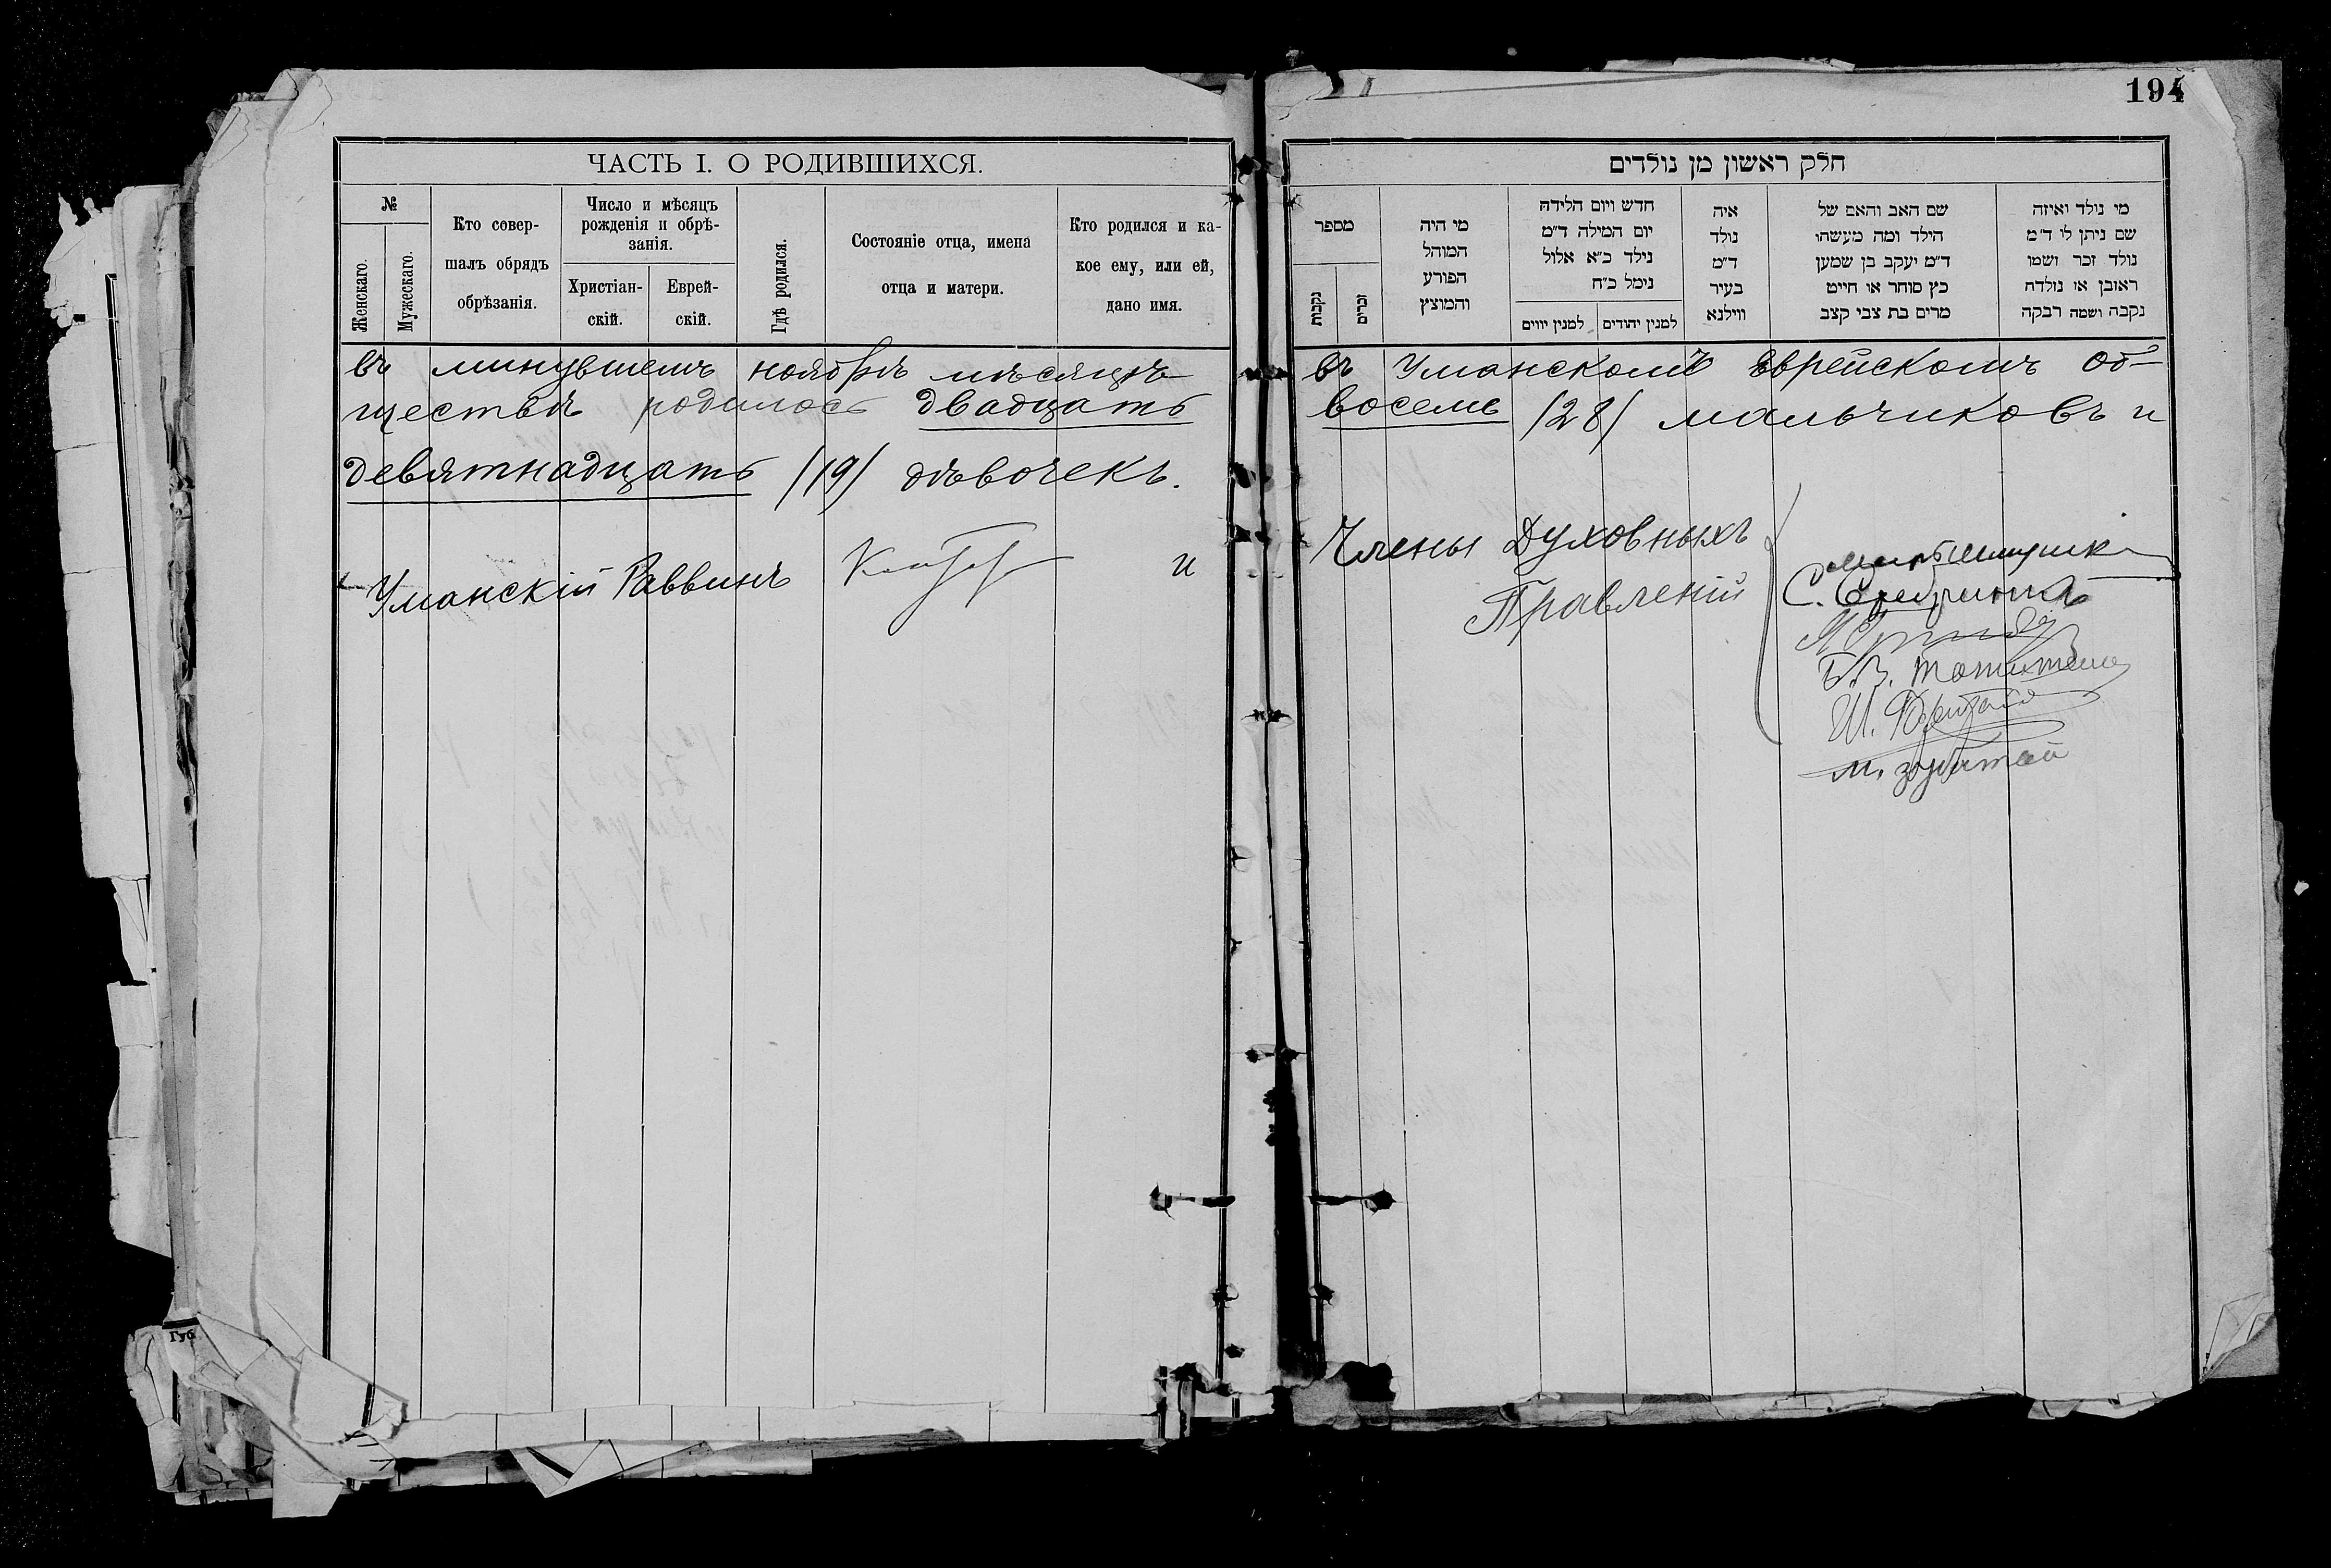 194
ЧАСТЬ I. О РОДИВШИХСЯ.
№
Женскаго.
Мужескаго.
Кто совер-
шалъ обрядъ
обрѣзанія.
Число и мѣсяцъ
рожденія и обрѣ-
занія.
Христіан-
скій.
Еврей-
скій.
Гдѣ родился.
Состояніе отца, имена
отца и матери.
Кто родился и ка-
кое ему, или ей,
дано имя.
חלק ראשון מן נולדים
מספר
נקבות
זכרים
מי היה
המוהל
הפורע
והמוצץ
חדש ויום הלידה
יום המילה ד"מ
נילד כ"א אלול
נימל כ"ח
למנין יווים
למנין יהודים
איה
נולד
ד"מ
בעיר
ווילנא
שם האב והאם של
הילד ומה מעשהו
ד"מ יעקב בן שמען
כץ סוחר או חייט
מרים בת צבי קצב
מי נולד ואיזה
שם ניתן לו ד"מ
נולד זכר ושמו
ראובן או נולדה
נקבה ושמה רבקה
въ минувшемъ ноябрѣ мѣсяцѣ въ Уманскомъ Еврейскомъ об-
ществѣ родилось двадцать восемь /28/ мальчиковъ и
девятнадцать /19/ дѣвочекъ.
Уманскій Раввинъ и Члены Духовныхъ
Правленій